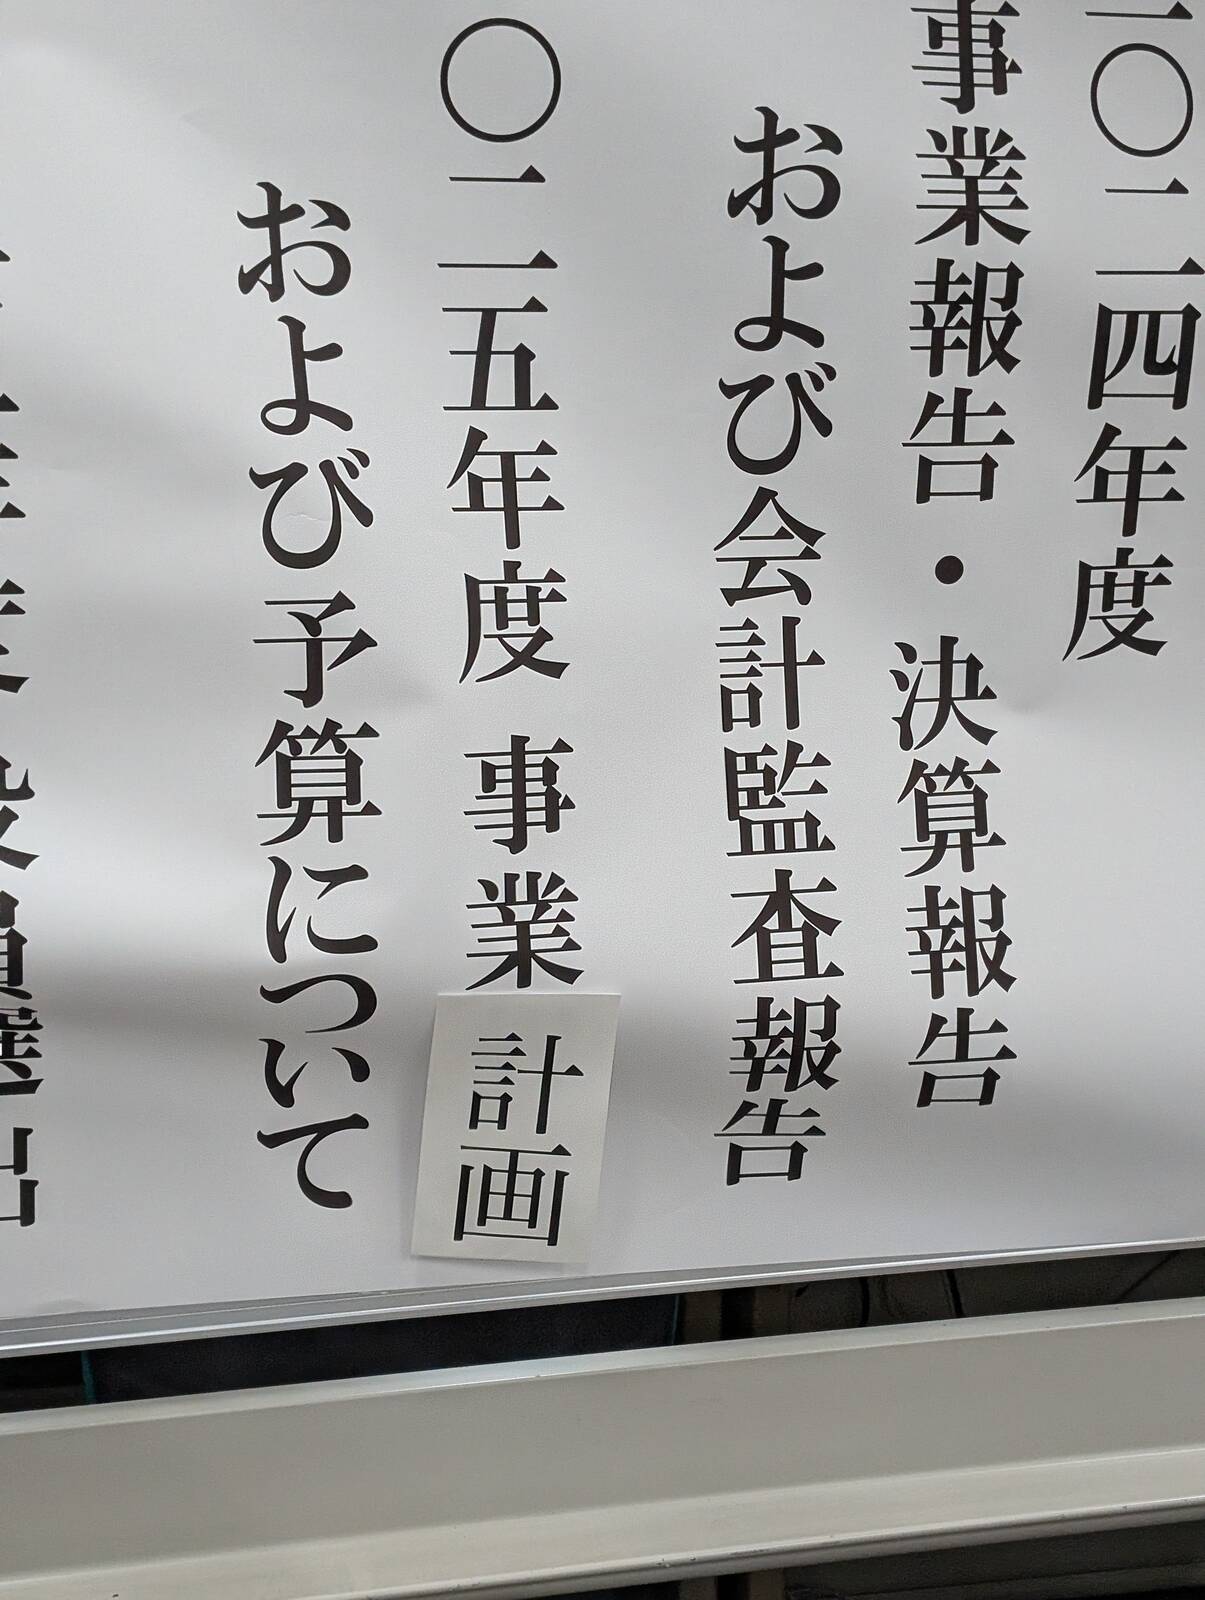 二〇二四年度
事業報告・決算報告
および会計監査報告
〇二五年度 事業計画
および予算について